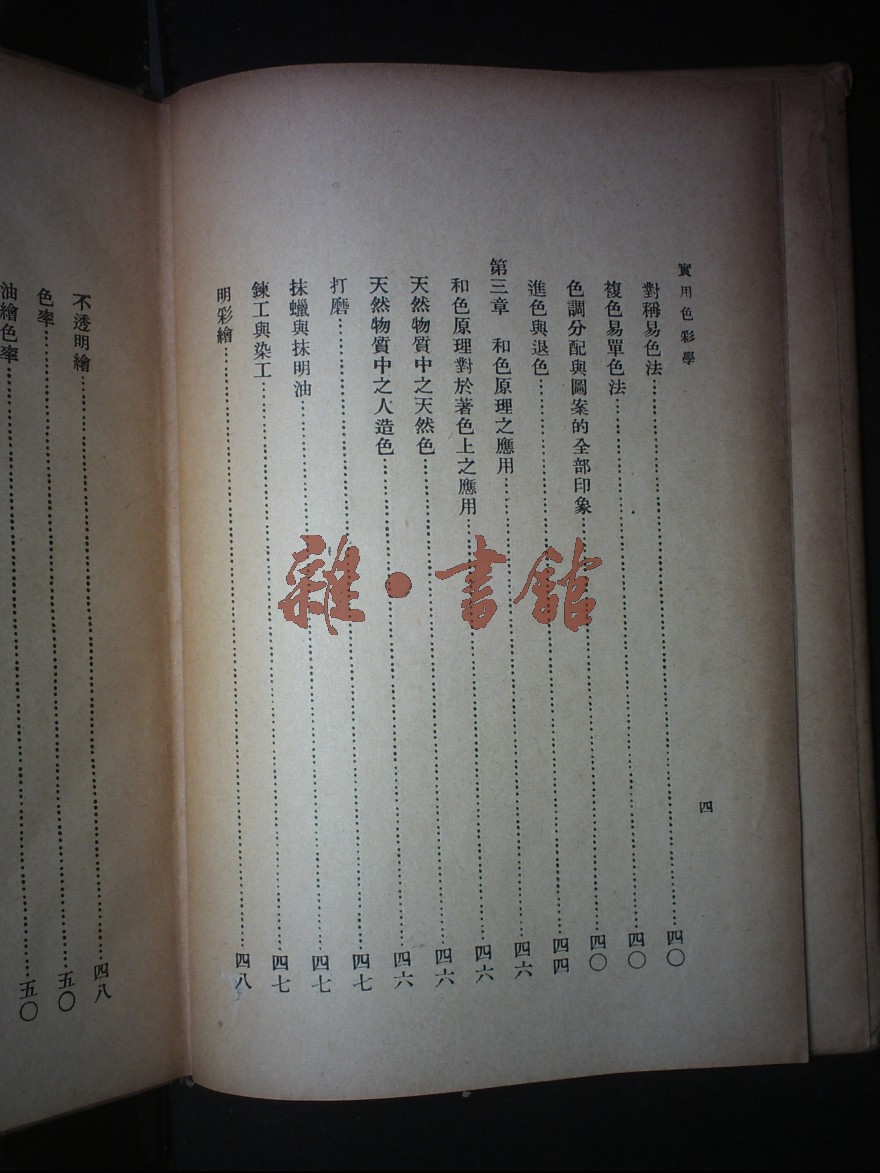 實用色彩學
四
對稱易色法⋯⋯四〇
複色易單色法⋯⋯四〇
色調分配與圖案的全部印象⋯⋯四〇
進色與退色⋯⋯四四
第三章 和色原理之應用⋯⋯四六
和色原理對於著色上之應用⋯⋯四六
天然物質中之天然色⋯⋯四六
天然物質中之人造色⋯⋯四六
打磨⋯⋯四七
抹蠟與抹明油⋯⋯四七
鍊工與染工⋯⋯四七
明彩繪⋯⋯四八
不透明繪⋯⋯四八
色率⋯⋯五〇
油繪色率⋯⋯五〇
雜·書館